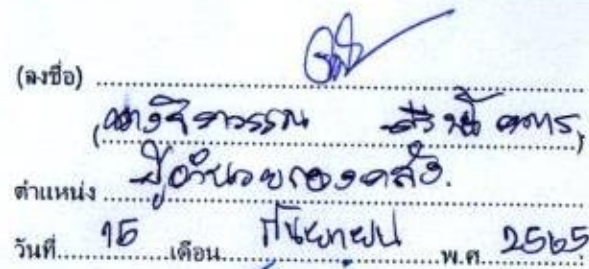 (ลงชื่อ)
(นางจิราวรรณ
ตำแหน่ง ผู้อำนวยกองคลัง.
วันที่ 15 เดือน กันยายน พ.ศ. 2565